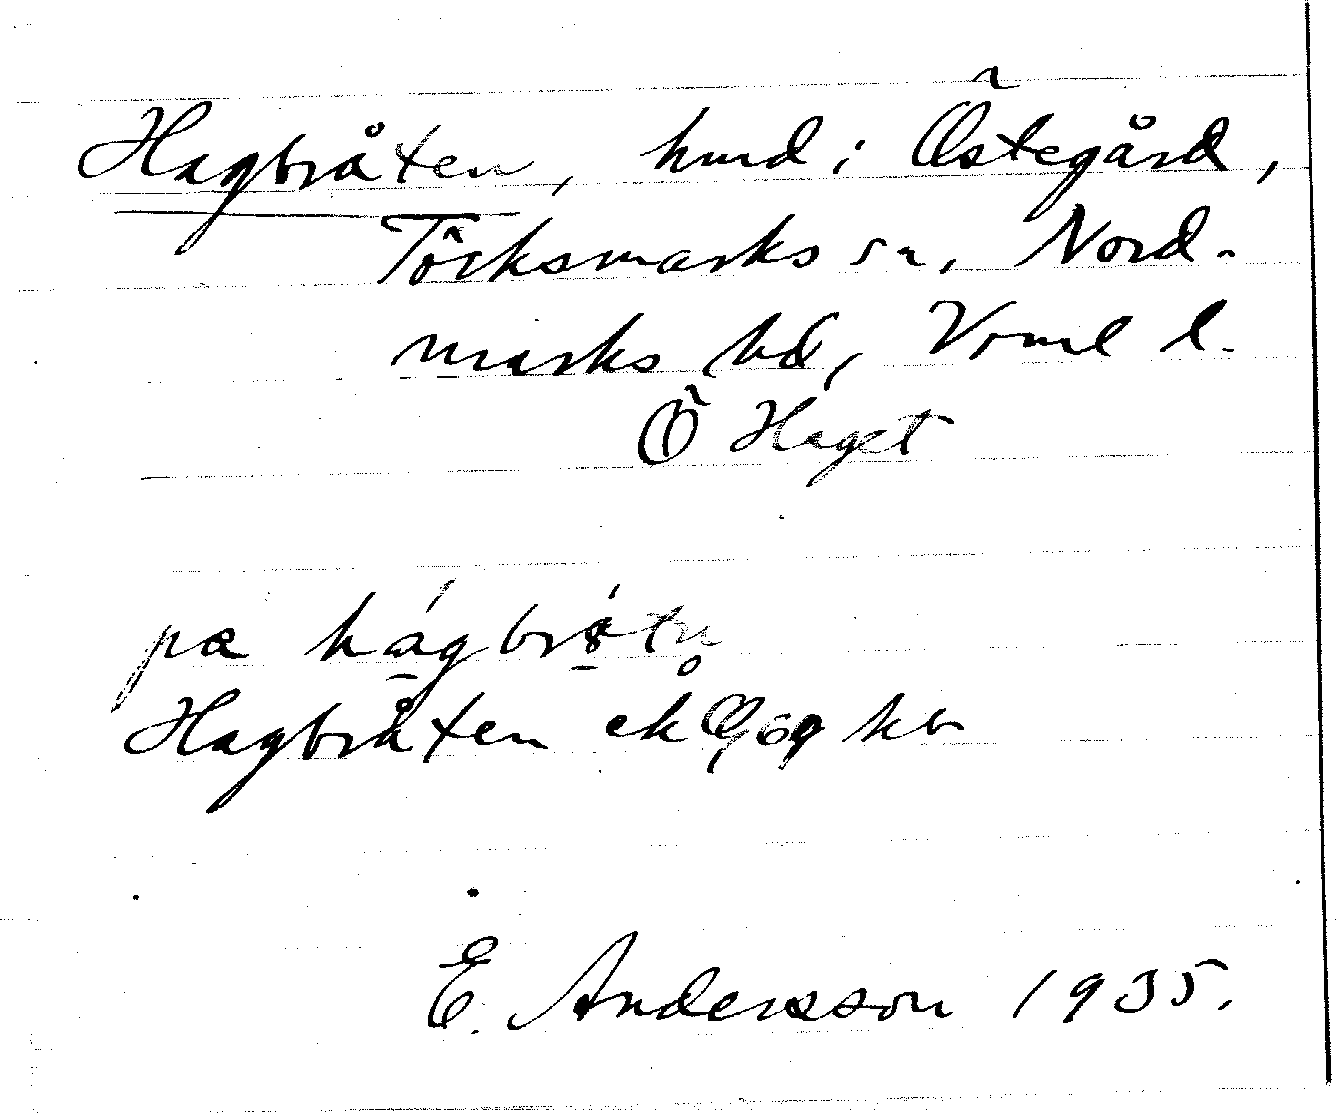 Hagbråten, hmd i Östegård,
Töcksmarks sn, Nord-
marks hd, Vrml l.
Ö Haget
pa hágbrótn
Hagbråten ek 0,69 kb
E. Andersson 1935.